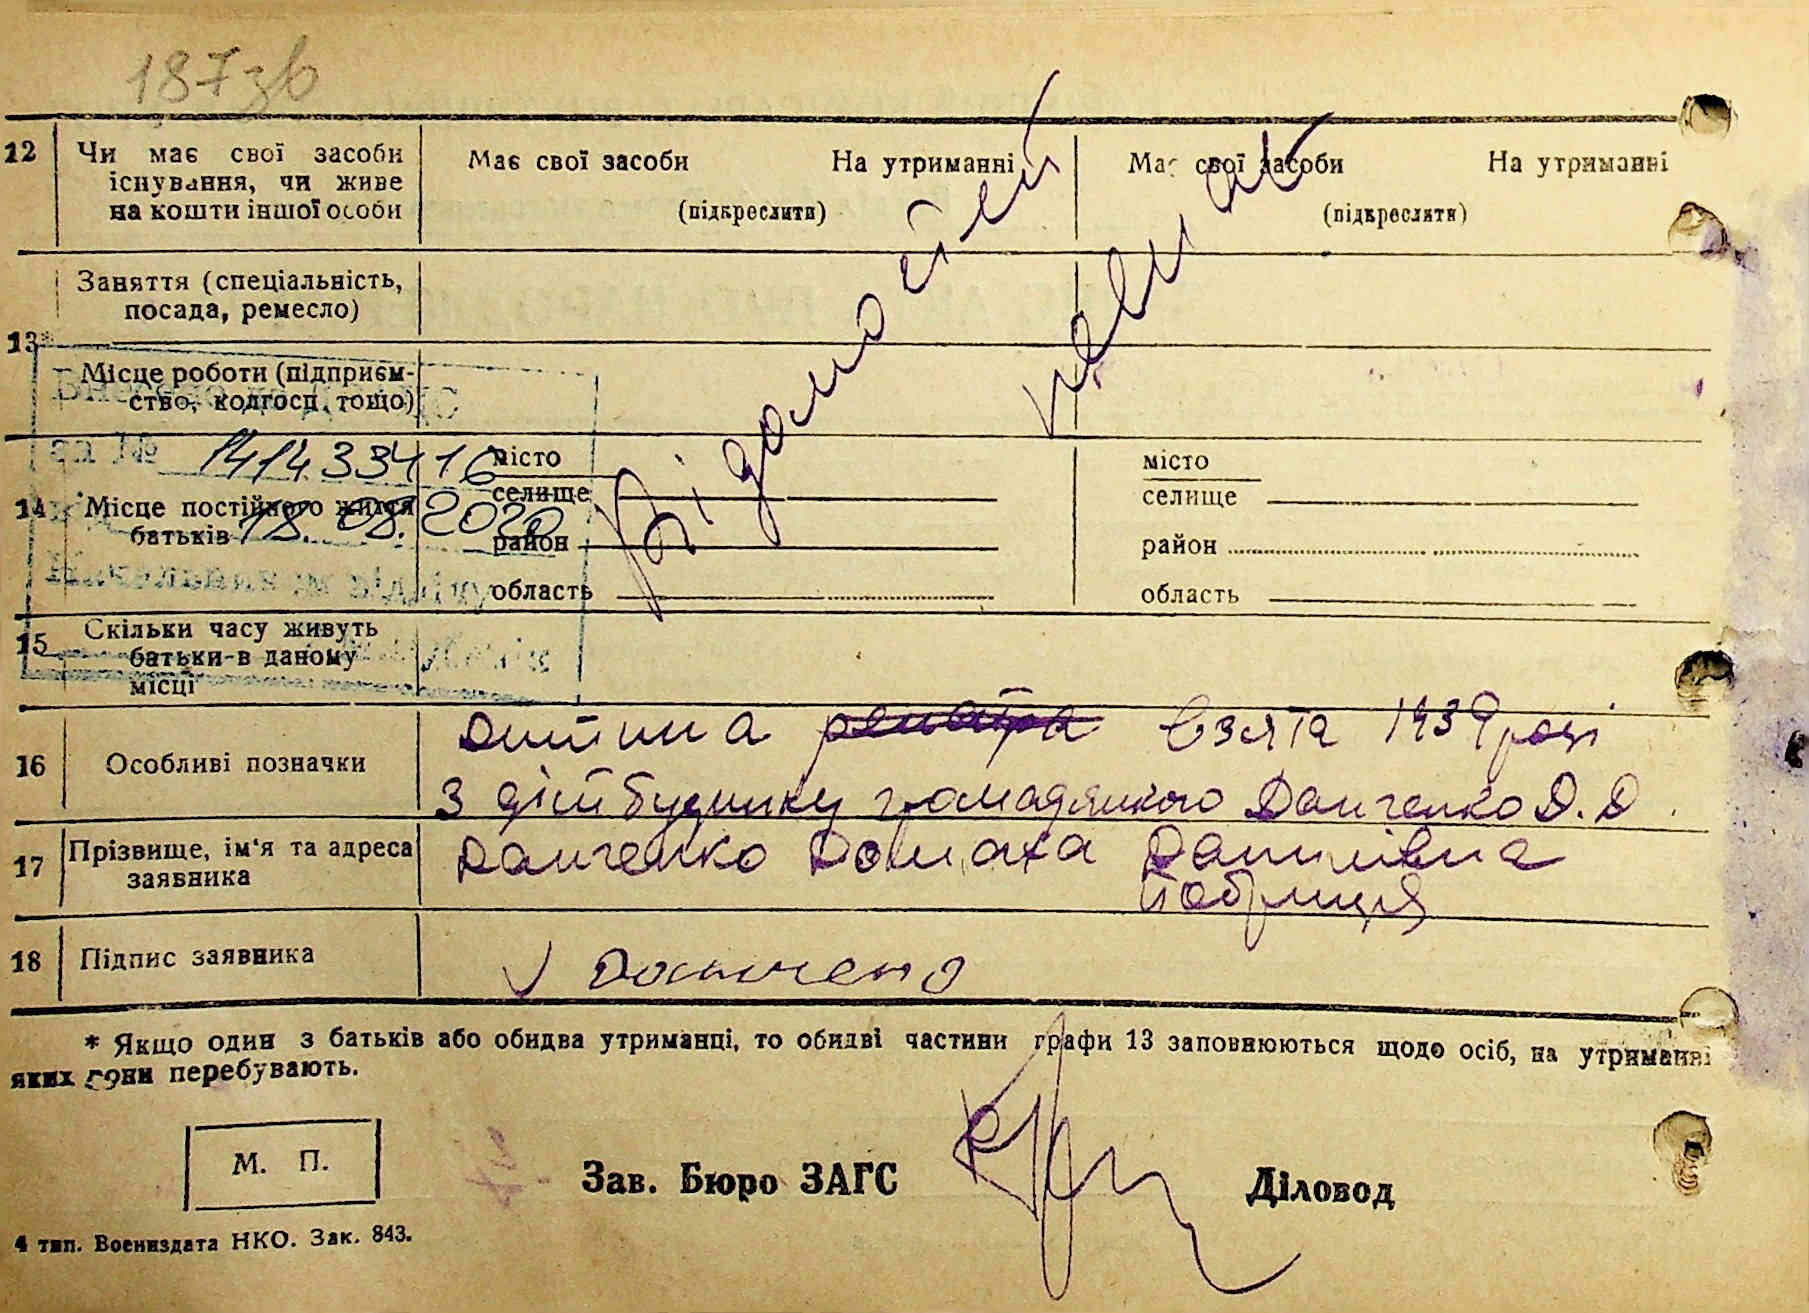 187зв
12 Чи має свої засоби існування, чи живе на кошти іншої особи
Має свої засоби На утриманні
(підкреслити)
Має свої засоби На утриманні
(підкреслити)
Відомостей немає
13*
Заняття (спеціальність, посада, ремесло)
Місце роботи (підприємство, колгосп, тощо)
за №
1414 334 16
18. 08. 2020
14 Місце постійного життя батьків
місто
селище
район
область
місто
селище
район
область
15 Скільки часу живуть батьки в даному місці
16 Особливі позначки
дитина взята 1939 році
з дітбудинку громадянкою Данченко Д. Д.
17 Прізвище, ім'я та адреса заявника
Данченко Домаха Данилівна
18 Підпис заявника
Данчено
* Якщо один з батьків або обидва утриманці, то обидві частини графи 13 заповнюються щодо осіб, на утриманні
яких вони перебувають.
М. П.
Зав. Бюро ЗАГС
Діловод
4 тип. Воениздата НКО. Зак. 843.